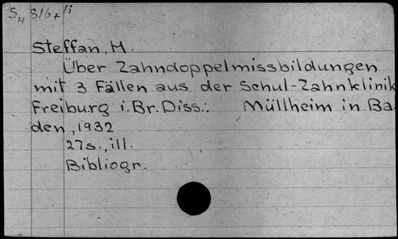 Steffan, M.
Über Zahndoppelmissbildungen
mit 3 Fällen aus der Schul-Zahnklinik
Freiburg i.Br. Diss.: Müllheim in Ba
den, 1932
27s., ill.
Bibliogr.